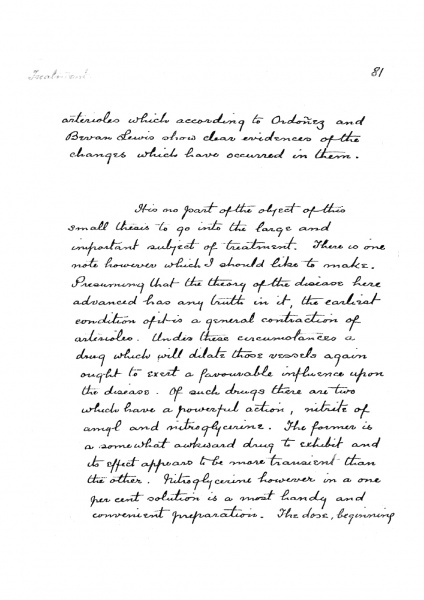 Treatment
81
arterioles which according to Ordoñez and
Bevan Lewis show clear evidences of the
changes which have occurred in them.
It is no part of the object of this
small thesis to go into the large and
important subject of treatment. There is one
note however which I should like to make.
Presuming that the theory of the disease here
advanced has any truth in it, the earliest
condition of it is a general contraction of
arterioles. Under these circumstances a
drug which will dilate those vessels again
ought to exert a favourable influence upon
the disease. Of such drugs there are two
which have a powerful action, nitrite of
amyl and nitroglycerine. The former is
a somewhat awkward drug to exhibit and
its effect appears to be more transient than
the other. Nitroglycerine however in a one
per cent solution is a most handy and
convenient preparation. The dose, beginning